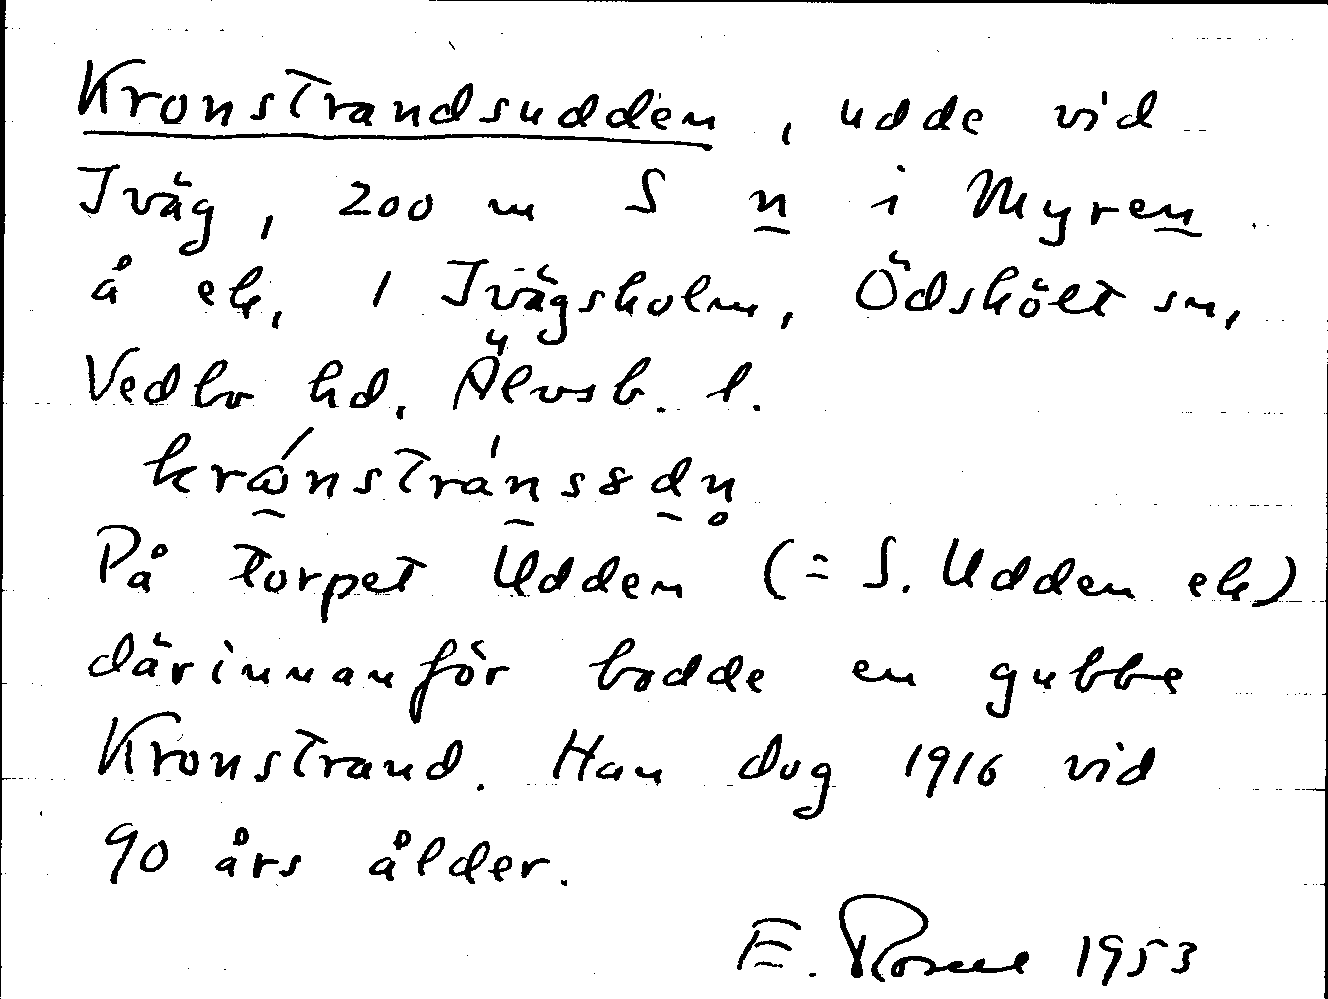 Kronstrandsudden, udde vid
Iväg, 200 m S n i Myren
å ek, 1 Ivägsholm, Ödskölt sn,
Vedbo hd, Älvsb. l.
På torpet Udden (= S. Udden ek)
därinnanför bodde en gubbe
Kronstrand. Han dog 1916 vid
90 års ålder.
E. 1953